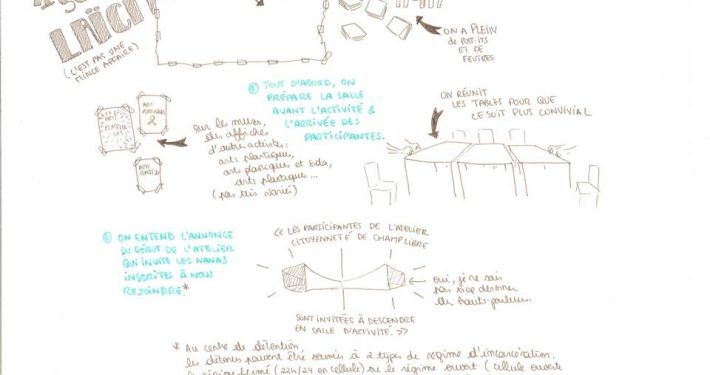 LAÏCI
(C'EST PAS UNE
MINCE AFFAIRE)
ON A PLEIN
de POST-ITS
ET DE
FEUTRES
① TOUT D'ABORD, ON
PRÉPARE LA SALLE
AVANT L'ACTIVITÉ &
L'ARRIVÉE DES
PARTICIPANTES.
ON RÉUNIT
LES TABLES POUR QUE
CE SOIT PLUS CONVIVIAL
ARTS
PLASTIQUES
&
ARTS
PLASTIQUES
sur les murs,
des affiches
d'autres activités:
arts plastiques,
arts plastiques et
arts plastiques...
(pas très variés)
② ON ENTEND L'ANNONCE
DU DÉBUT DE L'ATELIER
QUI INVITE LES NANAS
INSCRITES À NOUS
REJOINDRE*
<< LES PARTICIPANTES DE L'ATELIER
CITOYENNETÉ DE CHAMP LIBRE
SONT INVITÉES À DESCENDRE
EN SALLE D'ACTIVITÉ. >>
oui, je ne sais
pas trop dessiner
des hauts-parleurs...
* Au centre de détention,
les détenues peuvent être soumises à 2 types de régime d'incarcération.
le régime fermé (22h/24 en cellule) ou le régime ouvert (cellule ouverte